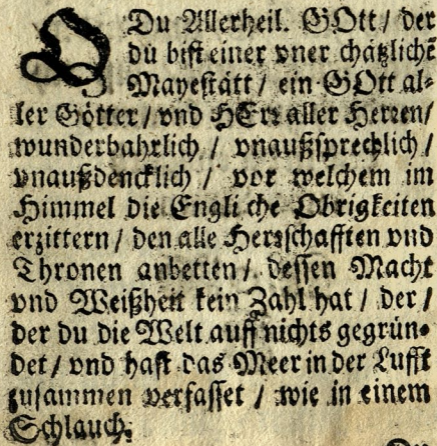 O Du Allerheil. GOtt / der
du bist einer vner chätzlichē
Mayestätt / ein GOtt al-
ler Götter / vnd HErr aller Herren /
wunderbahrlich / vnaußsprechlich /
vnaußdencklich / vor welchem im
Himmel die Engli che Obrigkeiten
erzittern / den alle Herrschafften vnd
Thronen anbetten / dessen Macht
vnd Weißheit kein Zahl hat / der /
der du die Welt auff nichts gegrün-
det / vnd hast das Meer in der Lufft
zusammen verfasset / wie in einem
Schlauch.